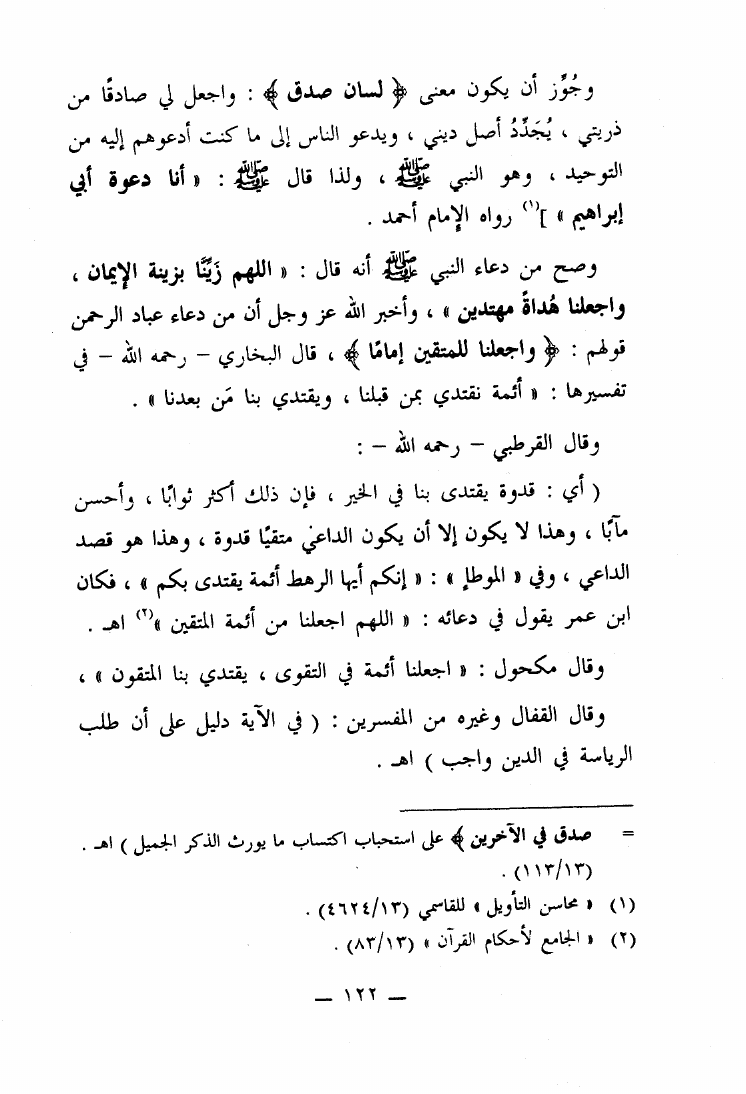 وجُوِّز أن يكون معنى ﴿ لسان صدق ﴾ : واجعل لي صادقًا من
ذريتي ، يُجَدِّدُ أصل ديني ، ويدعو الناس إلى ما كنت أدعوهم إليه من
التوحيد ، وهو النبي ﷺ ، ولذا قال ﷺ : « أنا دعوة أبي
إبراهيم » ](١) رواه الإمام أحمد .
وصح من دعاء النبي ﷺ أنه قال : « اللهم زَيِّنَّا بزينة الإيمان ،
واجعلنا هُداةً مهتدين » ، وأخبر الله عز وجل أن من دعاء عباد الرحمن
قولهم : ﴿ واجعلنا للمتقين إمامًا ﴾ ، قال البخاري – رحمه الله – في
تفسيرها : « أئمة نقتدي بمن قبلنا ، ويقتدي بنا مَن بعدنا » .
وقال القرطبي – رحمه الله – :
( أي : قدوة يقتدى بنا في الخير ، فإن ذلك أكثر ثوابًا ، وأحسن
مآبًا ، وهذا لا يكون إلا أن يكون الداعي متقيًا قدوة ، وهذا هو قصد
الداعي ، وفي « الموطإ » : « إنكم أيها الرهط أئمة يقتدى بكم » ، فكان
ابن عمر يقول في دعائه : « اللهم اجعلنا من أئمة المتقين »(٢) اهـ .
وقال مكحول : « اجعلنا أئمة في التقوى ، يقتدي بنا المتقون » ،
وقال القفال وغيره من المفسرين : ( في الآية دليل على أن طلب
الرياسة في الدين واجب ) اهـ .
= صدق في الآخرين ﴾ على استحباب اكتساب ما يورث الذكر الجميل ) اهـ .
(١١٣/١٣) .
(١) « محاسن التأويل » للقاسمي (٤٦٢٤/١٣) .
(٢) « الجامع لأحكام القرآن » (٨٣/١٣) .
– ١٢٢ –